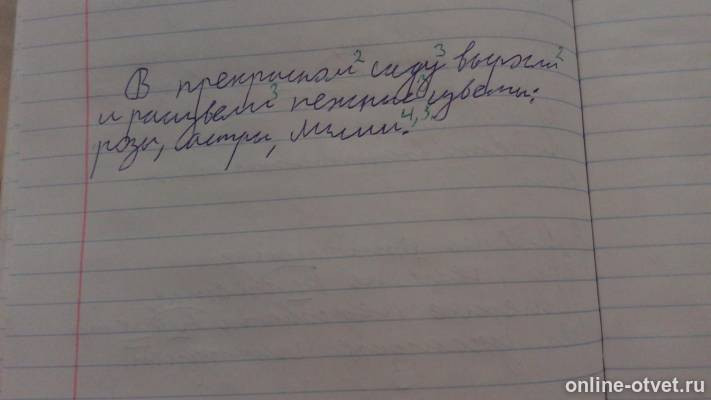 В прекрасном² саду³ выросли²
и расцвели³ нежные² цветы:
розы, астры, лилии.⁴,³
online-otvet.ru